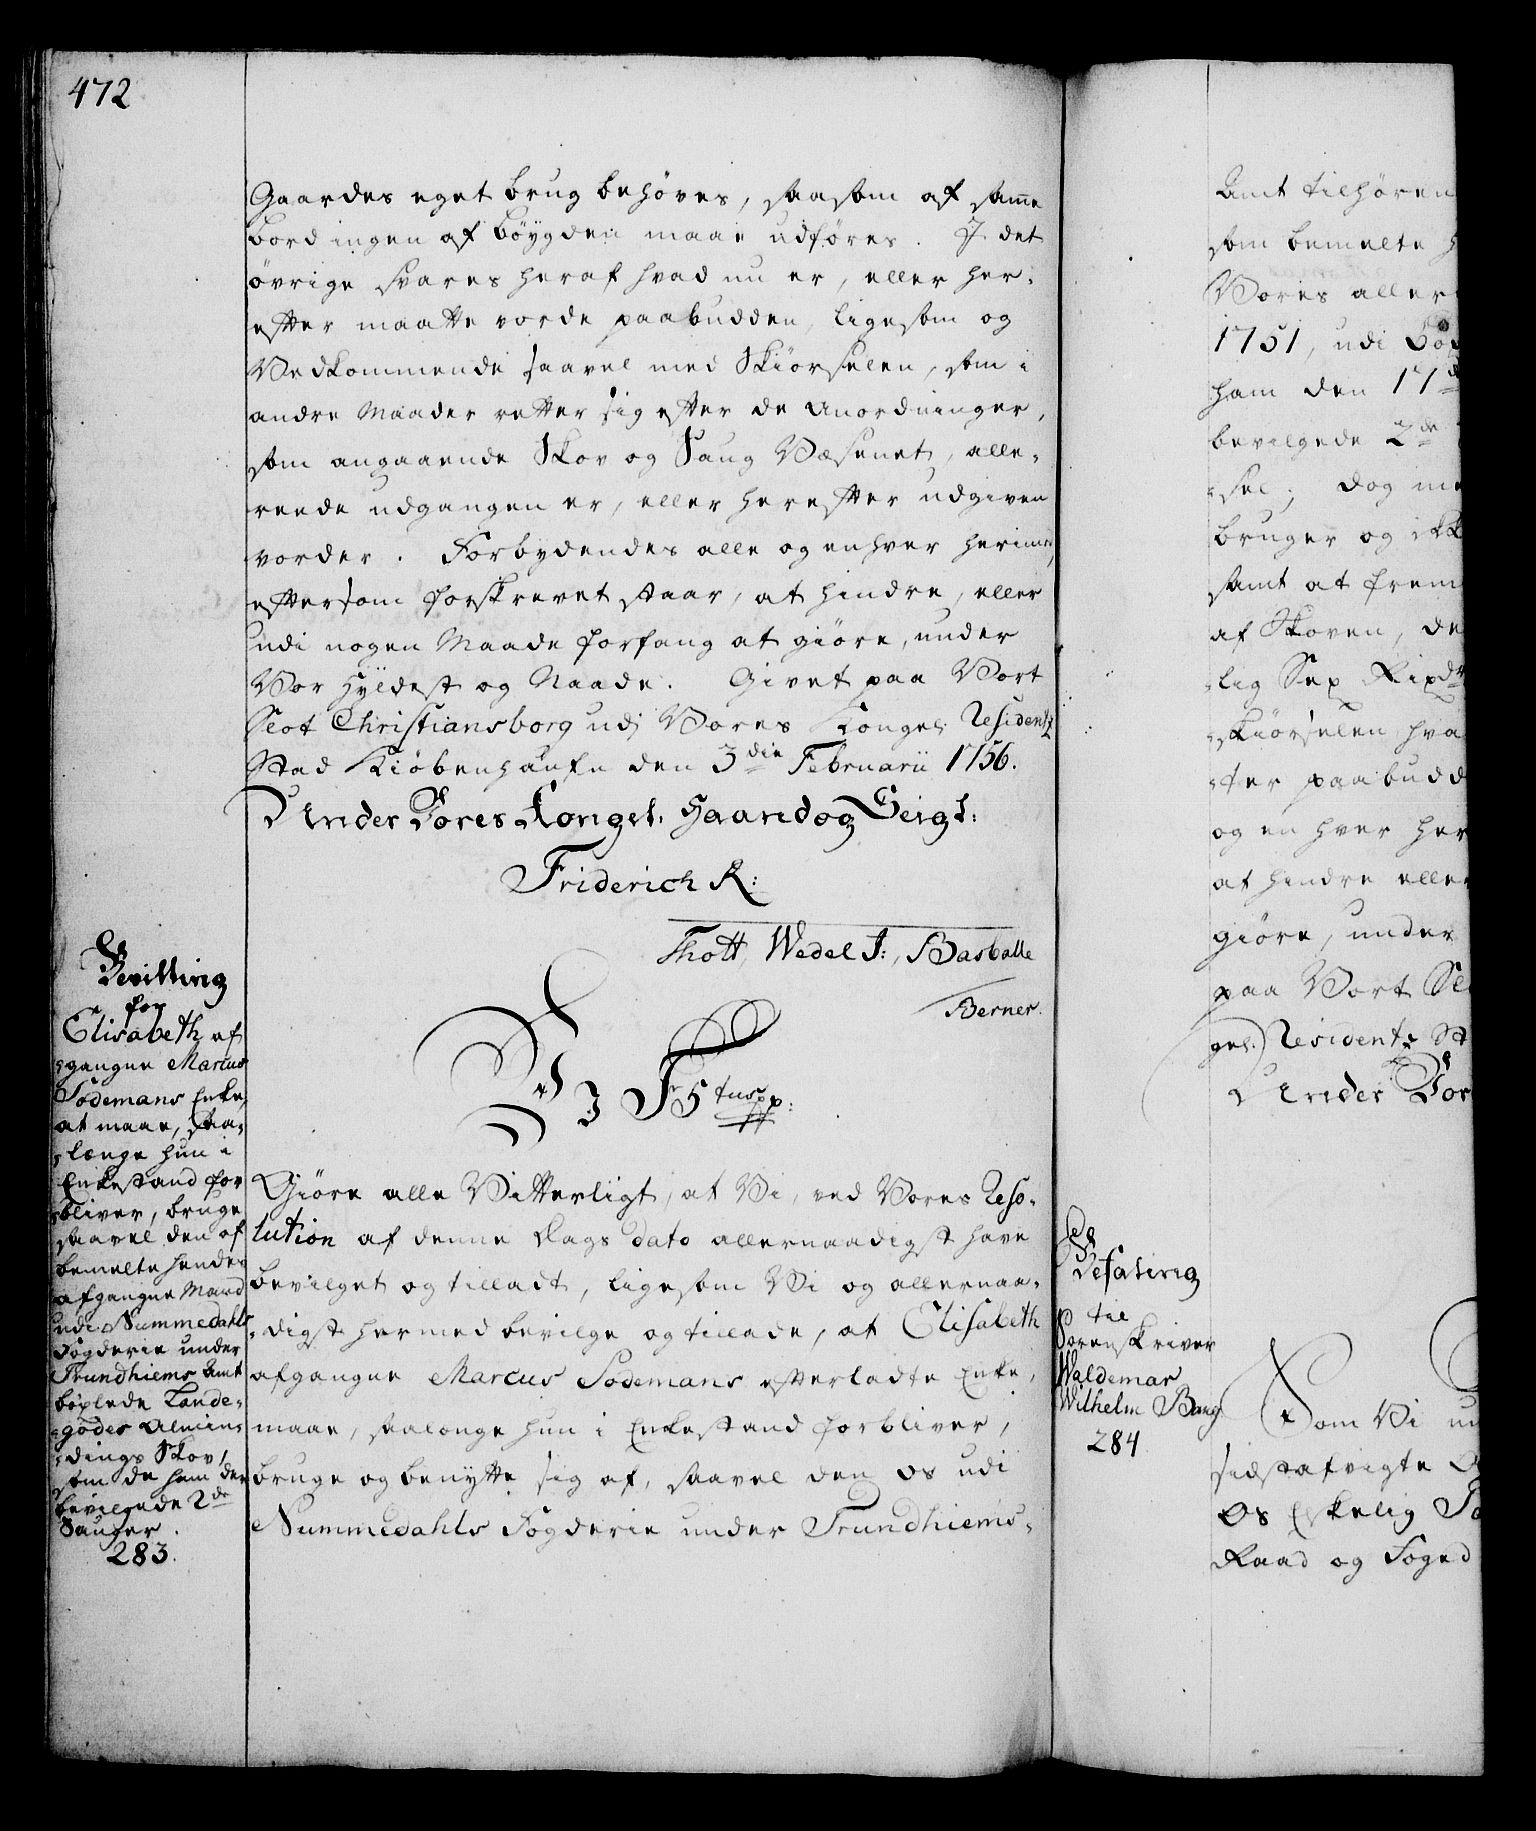 472
Gaardes eget brug behøves, saasom af samme
bord ingen af Böygden maae udføres. I det
øvrige svares heraf hvad nu er, eller her-
efter maatte vorde paabudden, ligesom og
Vedkommende saavel med Skiörselen, som i
andre Maader retter sig efter de Anordninger,
som angaaende Skov og Saug Væsenet, alle-
reede udgangen er, eller herefter udgiven
vorder. Forbydendes alle og enhver herimod,
eftersom forskrevet staar, at hindre, eller
udi nogen Maade forfang at giöre, under
Vor Hyldest og Naade. Givet paa Vort
Slot Christiansborg udj Vores Kongel: Residentz
Stad Kiöbenhaufn den 3die Februarii 1756.
Under Vores Kongel: Haand og Seigl:
Friderich R:
Thott, Wedel J:, Barballe
Berner.
Bevilling
for
Elisabeth af
-gangne Marcus
Södemans Enke,
at maae, saa-
-længe hun i
Enkestand for
-bliver, bruge
saavel den af
bemelte hendes
afgangne Mand
udi Nummedahls
Fogderie under
Trundhiems Amt
böxlede Lande-
-godes Almin-
-dings Skov,
som de ham der
bevilgede 2de
Sauger.
283.
V J F5tus pp:
Giöre alle Vitterligt, at Vi, ved Vores Reso-
lution af denne Dags dato allernaadigst have
bevilget og tilladt, ligesom Vi og allernaa-
-digst hermed bevilge og tillade, at Elisabeth
afgangne Marcus Södemans efterladte Enke,
maae, saalænge hun i Enkestand forbliver,
bruge og benytte sig af, saavel den os udi
Nummedahls Fogderie under Trundhiems-
Amt tilhøren
som bemelte h
Vores aller
1751, udi
ham den 17d
bevilgede 2de
-sel; dog me
bruger og ikk
samt at frem
af Skoven, de
-lig Sex Rixdr
-skiörselen hva
-ter paabudd
og en hver her
at hindre eller
giöre, under
paa Vort Sl
gel: Residentz St
Under Vor
Befaling
til
Sorenskriver
Waldemar
Wilhelm Bang
284
Som Vi un
sidstafvigte
Os Elskelig
Raad og Foged